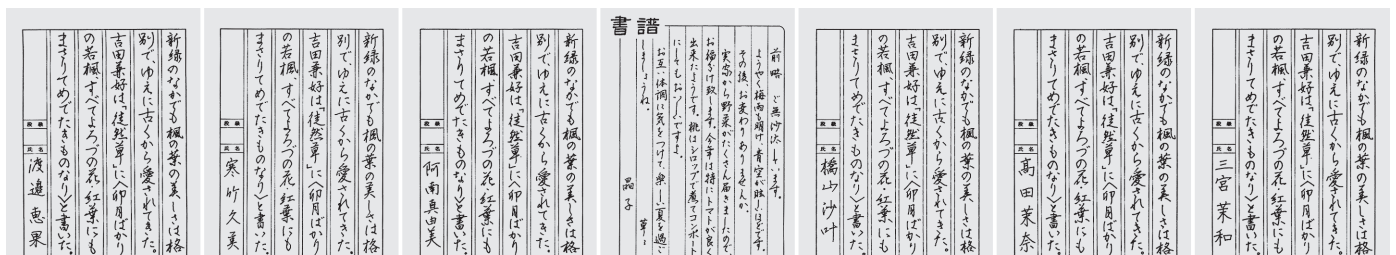 新緑のなかでも楓の葉の美しさは格
別で、ゆえに古くから愛されてきた。
吉田兼好は「徒然草」に〈卯月ばかり
の若楓、すべてよろづの花・紅葉にも
まさりてめでたきものなり〉と書いた。
段級
氏名
渡邉 恵果
新緑のなかでも楓の葉の美しさは格
別で、ゆえに古くから愛されてきた。
吉田兼好は「徒然草」に〈卯月ばかり
の若楓、すべてよろづの花・紅葉にも
まさりてめでたきものなり〉と書いた。
段級
氏名
寒竹久美
新緑のなかでも楓の葉の美しさは格
別で、ゆえに古くから愛されてきた。
吉田兼好は「徒然草」に〈卯月ばかり
の若楓、すべてよろづの花・紅葉にも
まさりてめでたきものなり〉と書いた。
段級
氏名
阿南真由美
書譜
前略 ご無沙汰しています。
ようやく梅雨も明け、青空が眩しいほどです。
その後、お変わりありませんか。
実家から野菜がたくさん届きましたので、
お福分け致します。今年は特にトマトが良く
出来たようです。桃はシロップで煮てコンポート
にしてもおいしいですよ。
お互い体調に気をつけて、楽しい夏を過ご
しましょうね。
草々
晶子
新緑のなかでも楓の葉の美しさは格
別で、ゆえに古くから愛されてきた。
吉田兼好は「徒然草」に〈卯月ばかり
の若楓、すべてよろづの花・紅葉にも
まさりてめでたきものなり〉と書いた。
段級
氏名
橋山沙叶
新緑のなかでも楓の葉の美しさは格
別で、ゆえに古くから愛されてきた。
吉田兼好は「徒然草」に〈卯月ばかり
の若楓、すべてよろづの花・紅葉にも
まさりてめでたきものなり〉と書いた。
段級
氏名
髙田茉奈
新緑のなかでも楓の葉の美しさは格
別で、ゆえに古くから愛されてきた。
吉田兼好は「徒然草」に〈卯月ばかり
の若楓、すべてよろづの花・紅葉にも
まさりてめでたきものなり〉と書いた。
段級
氏名
三宮茉和